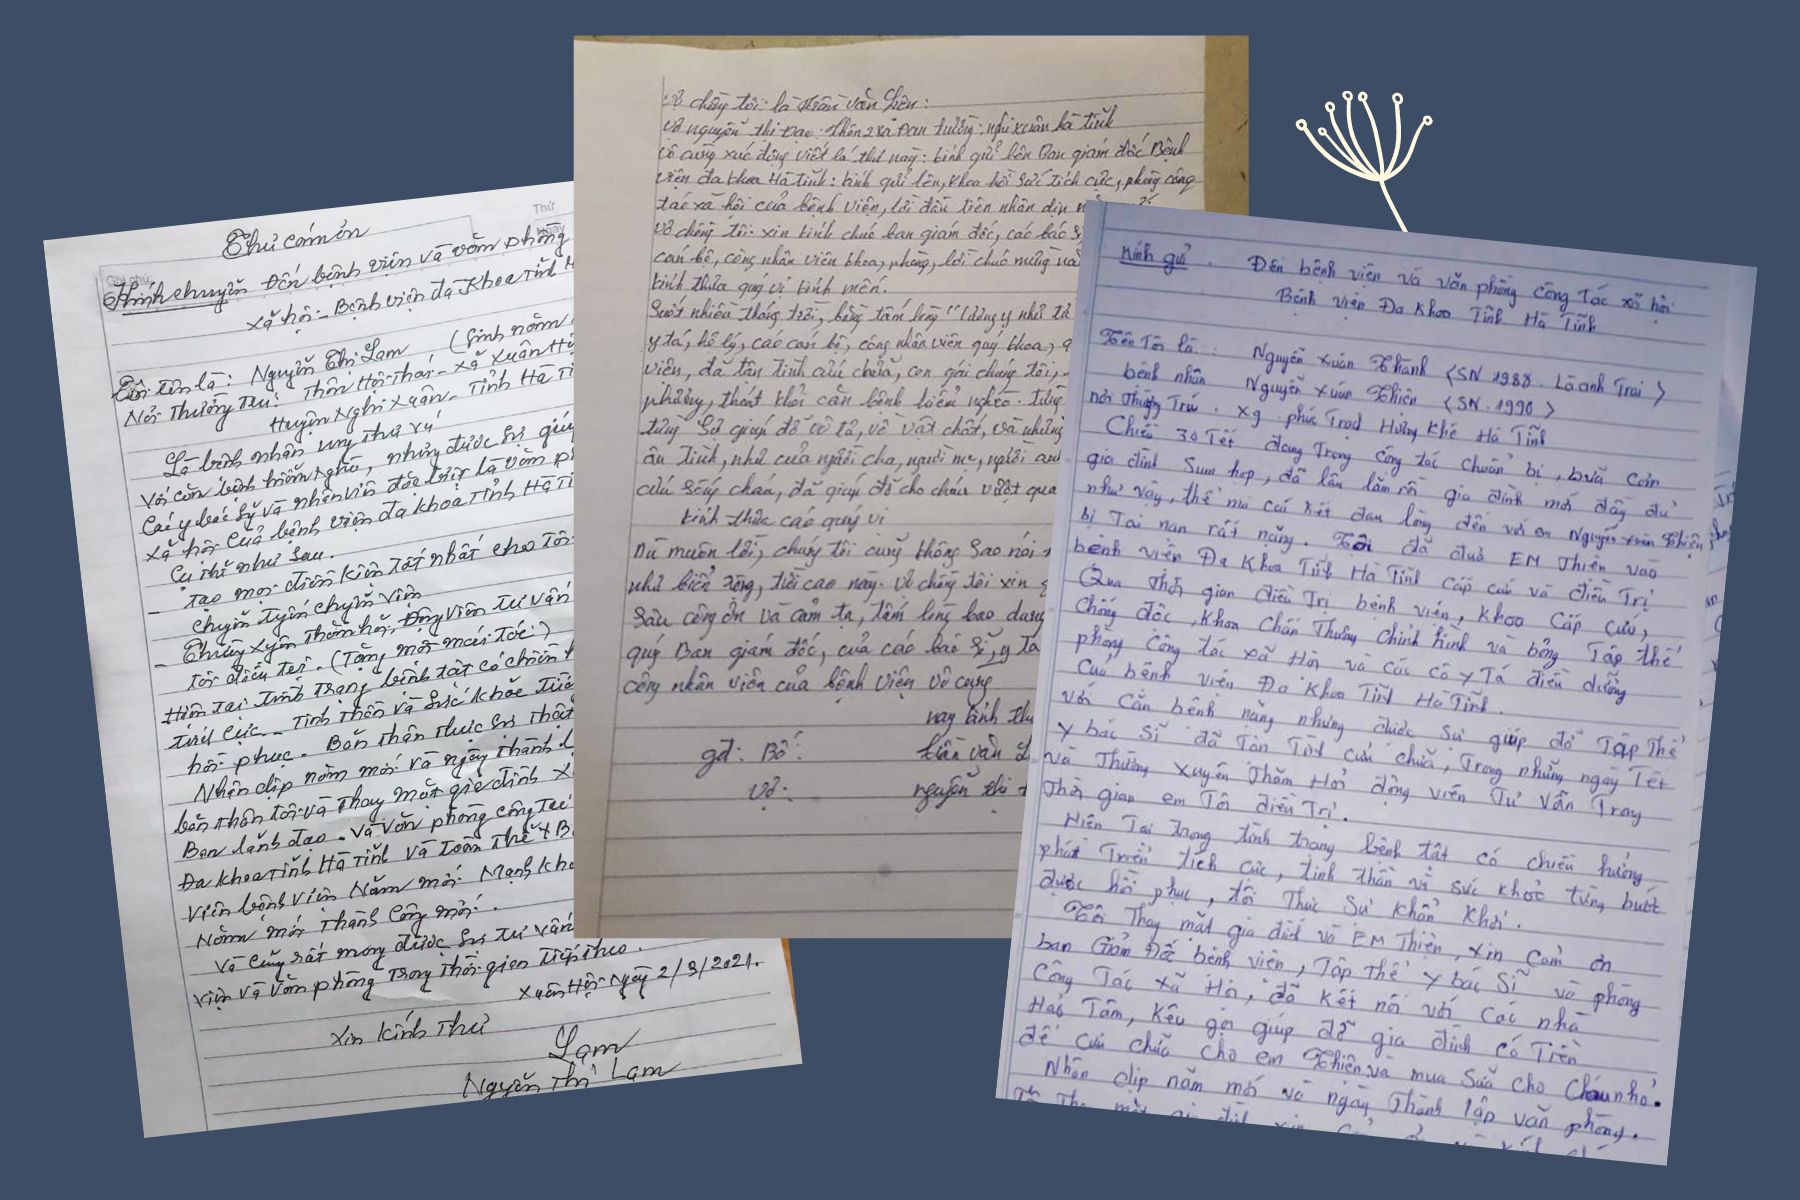 Thư cảm ơn
Thứ
Ghi chú:
Kính chuyển Đến bệnh viện và văn phòng
xã hội - Bệnh viện đa khoa tỉnh H
Tôi tên là: Nguyễn Thị Lam (Sinh năm
Nơi Thường Trú: Thôn Hội Thái - xã Xuân Hội
Huyện Nghi Xuân - Tỉnh Hà Tĩ
Là bệnh nhân ung thư vú
Với căn bệnh hiểm nghèo, nhưng được sự giúp
các y bác sỹ và nhân viên đặc biệt là văn ph
xã hội của bệnh viện đa khoa tỉnh Hà Tĩ
Cụ thể như sau.
- Tạo mọi điều kiện tốt nhất cho tôi
chuyển tuyến chuyên viện
- Thường xuyên thăm hỏi, động viên tư vấn
tôi điều trị - (Tặng một mái tóc)
Hiện tại tình trạng bệnh tật có chiều h
tích cực - Tinh thần và sức khỏe
hồi phục - Bản thân thực sự
Nhân dịp năm mới và ngày thành l
bản thân tôi và thay mặt gia đình x
Ban lãnh đạo - và văn phòng công tác
Đa khoa tỉnh Hà Tĩnh và toàn thể y B
viên bệnh viện Năm mới Mạnh kho
Năm mới thành công mới.
và cũng rất mong được sự tư vấn
viện và văn phòng trong thời gian tiếp theo.
Xuân Hội - Ngày 2/3/2021.
Xin kính thư
Lam
Nguyễn Thị Lam
vợ chồng tôi: là trần văn
vợ nguyễn thị Đạo thôn 2 xã Đan trường: nghi xuân hà tĩnh
vô cùng xúc động viết lá thư này: kính gửi lên Ban giám đốc Bệnh
viện đa khoa Hà tĩnh: kính gửi lên, khoa hồi sức tích cực, phòng công
tác xã hội của bệnh viện, lời đầu tiên nhân dịp
vợ chồng tôi: xin kính chúc ban giám đốc, các bác s
cán bộ, công nhân viên khoa, phòng, lời chúc mừng
kính thưa quý vị kính mến.
Suốt nhiều tháng trời, bằng tấm lòng "lương y như từ
y tá, hộ lý, các cán bộ, công nhân viên quý khoa,
viên, đã tận tình cứu chữa, con gái chúng tôi,
thoát khỏi căn bệnh hiểm nghèo. Từng
từng sự giúp đỡ về vật chất, và những
ân tình, như của người cha, người mẹ, người an
cứu sống cháu, đã giúp đỡ cho cháu vượt qua
kính thưa các quý vị
Dù muôn lời, chúng tôi cũng không sao nói
như biển rộng, trời cao này. Vợ chồng tôi xin g
sâu công ơn và cảm tạ, tấm lòng bao dung
quý Ban giám đốc, của các bác sĩ, y tá
công nhân viên của bệnh viện vô cùng
nay kính th
gđ: Bố: trần văn
Vợ: nguyễn thị
Kính gửi. Đến bệnh viện và văn phòng công tác xã hội
Bệnh viện Đa Khoa Tỉnh Hà Tĩnh
Tên Tôi là: Nguyễn Xuân Thành (SN 1988. Là anh Trai)
bệnh nhân Nguyễn Xuân Thiên (SN. 1990)
nơi Thường Trú. Xg. phúc Trạch Hương Khê Hà Tĩnh
Chiều 30 Tết đang Trong công tác chuẩn bị, bữa cơm
gia đình sum họp, đã lâu lắm rồi gia đình mới đầy đủ
như vậy, thế mà cái kết đau lòng đến với em Nguyễn Xuân Thiện
bị Tai nạn rất nặng. Tôi đã đưa EM Thiện vào
bệnh viện Đa Khoa Tỉnh Hà Tĩnh cấp cứu và điều Trị
Qua thời gian điều Trị bệnh viện, Khoa Cấp cứu,
Chống độc, Khoa chấn Thương chỉnh hình và bỏng Tập thể
phòng công tác xã Hội và các cô y Tá điều dưỡng
Của bệnh viện Đa Khoa Tỉnh Hà Tĩnh.
với căn bệnh nặng nhưng được sự giúp đỡ Tập Thể
y bác Sĩ đã Tận Tình cứu chữa, Trong những ngày Tết
và Thường xuyên Thăm Hỏi động viên Tư vấn Trong
Thời gian em Tôi điều Trị.
Hiện Tại trong tình trạng bệnh tật có chiều hướng
phát Triển tích cực, tinh thần và sức khỏe từng bước
được hồi phục, đã Thực Sự khẩn Khởi.
Tôi Thay mặt gia đình và EM Thiện, xin Cảm ơn
ban Giám Đốc bệnh viện, Tập Thể y bác Sĩ và phòng
Công Tác Xã Hội, đã Kết nối với các nhà
Hảo Tâm, Kêu gọi giúp đỡ gia đình có Tiền
để cứu chữa cho em Thiện và mua Sữa cho Cháu nhỏ.
Nhân dịp năm mới và ngày Thành lập văn phòng.